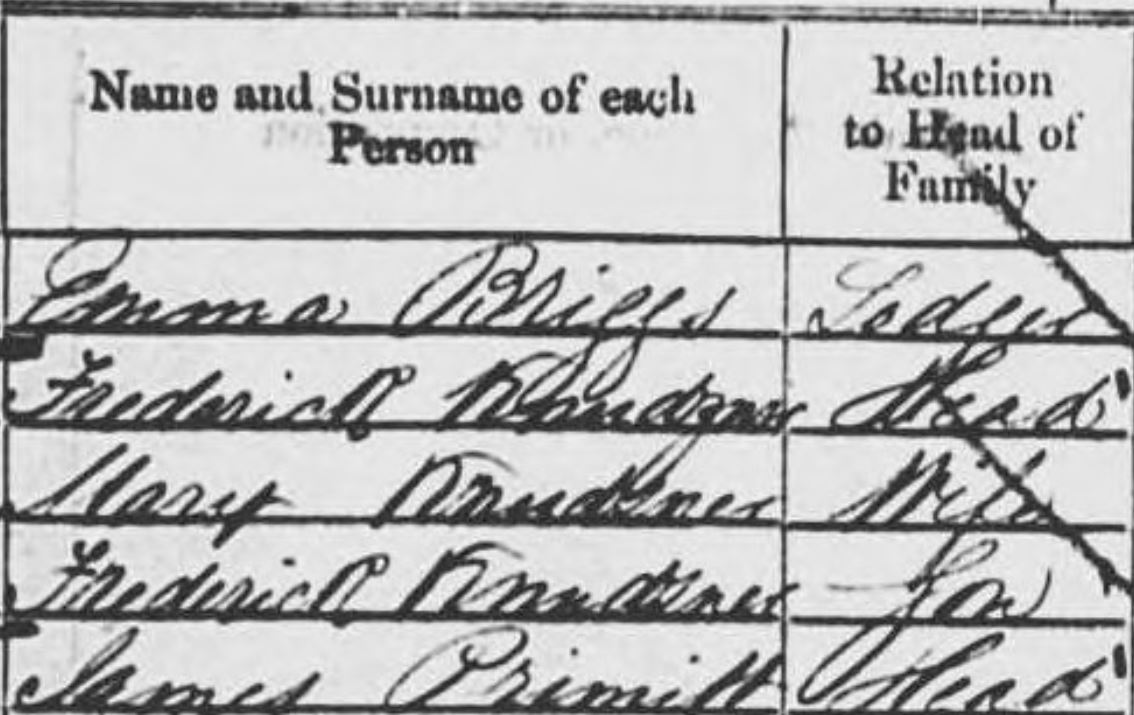 Name and Surname of each Person
Relation to Head of Family
Emma Briggs Lodger
Frederick Head
Mary Wife
Frederick Son
James Head